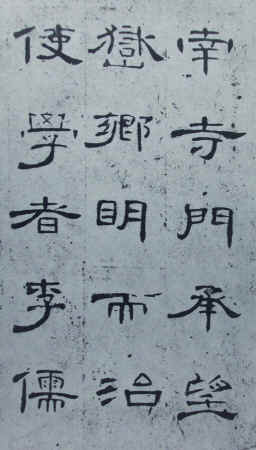 南寺門承望
嶽鄉明而治
使學者李儒